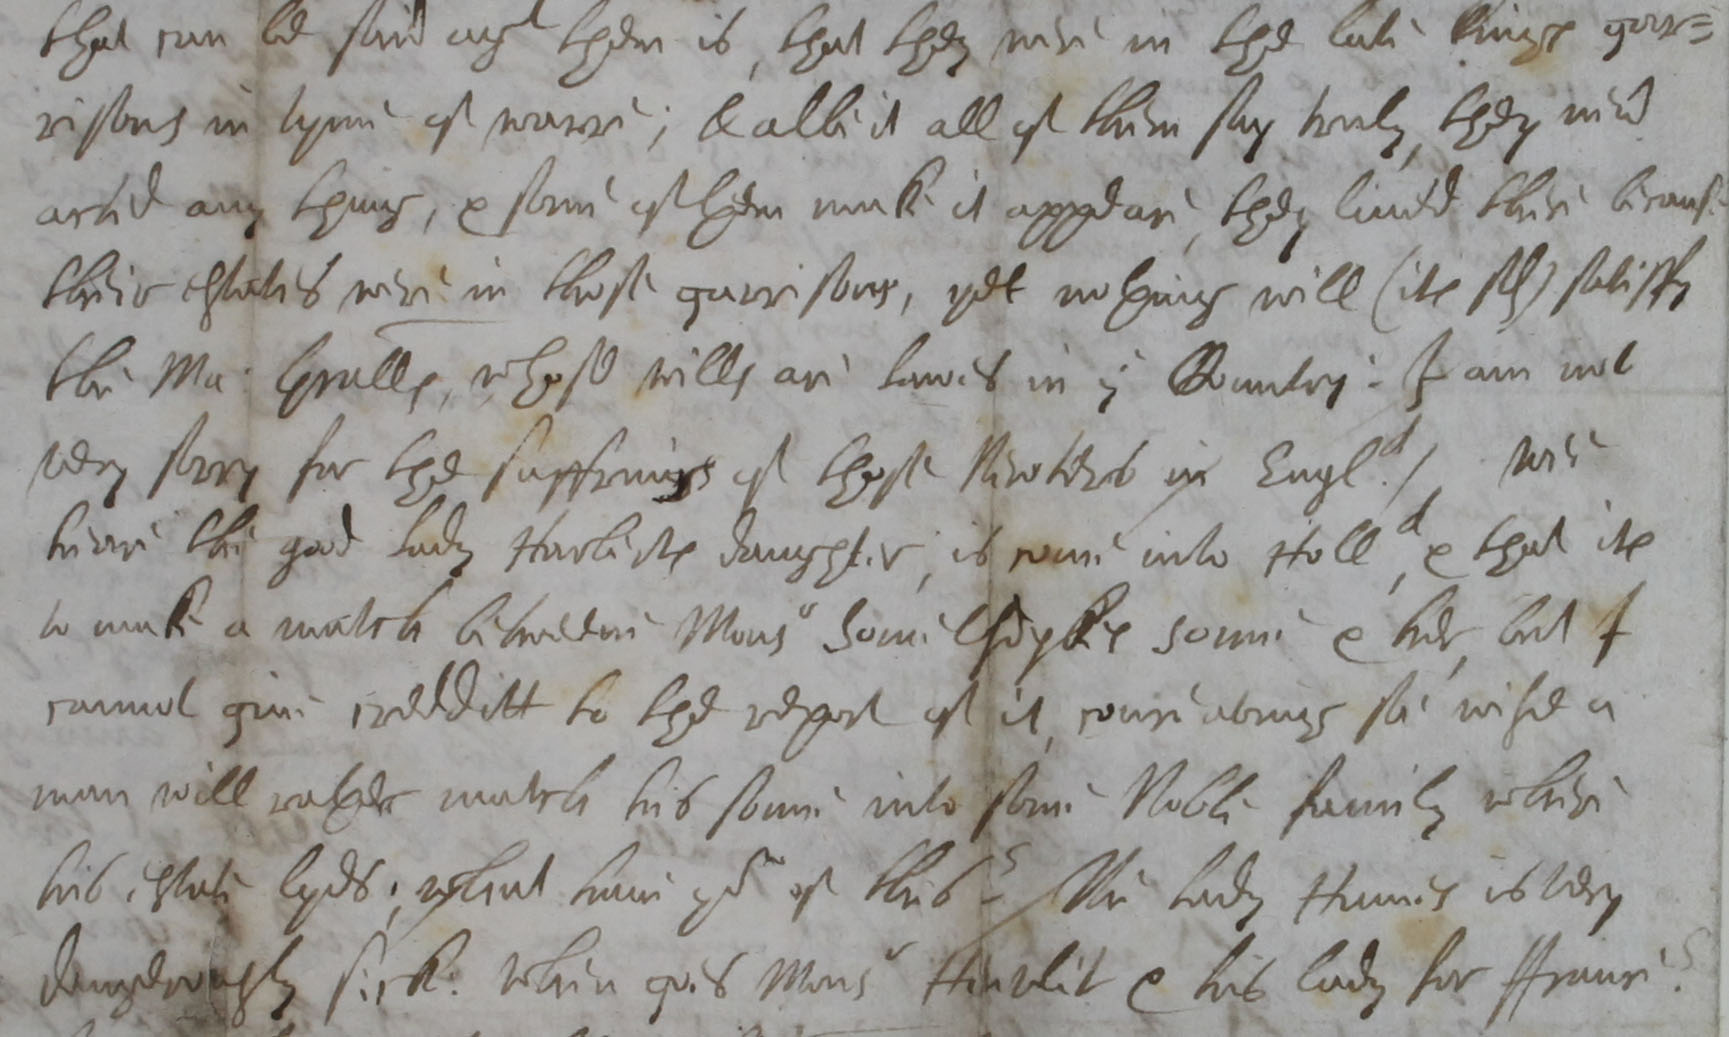 that can be said agt them is, that they were in the late kings gar=
risons in tyme of warre; & albeit all of them say truly, they nev'r
acted any thing, & some of them make it appeare, they liued there because
their estates were in those garrisons, yet nothing will (its sd) satisfy
the Ma: Gralls, whose wills are lawes in ye Country. I am not
very sorry for the suffrings of those Neuters in Engld./ Wee
heare the good lady daughter, is come into Holld, & that its
to make a match betweene Monsr sonne & her, but I
cannot giue creditt to the report of it, conceauing soe wise a
man will rather match his sonne into some Noble family where
his estate lyes; what heare you of this? / The lady is very
dangerously sick. When goes Monsr & his lady for ffrance?